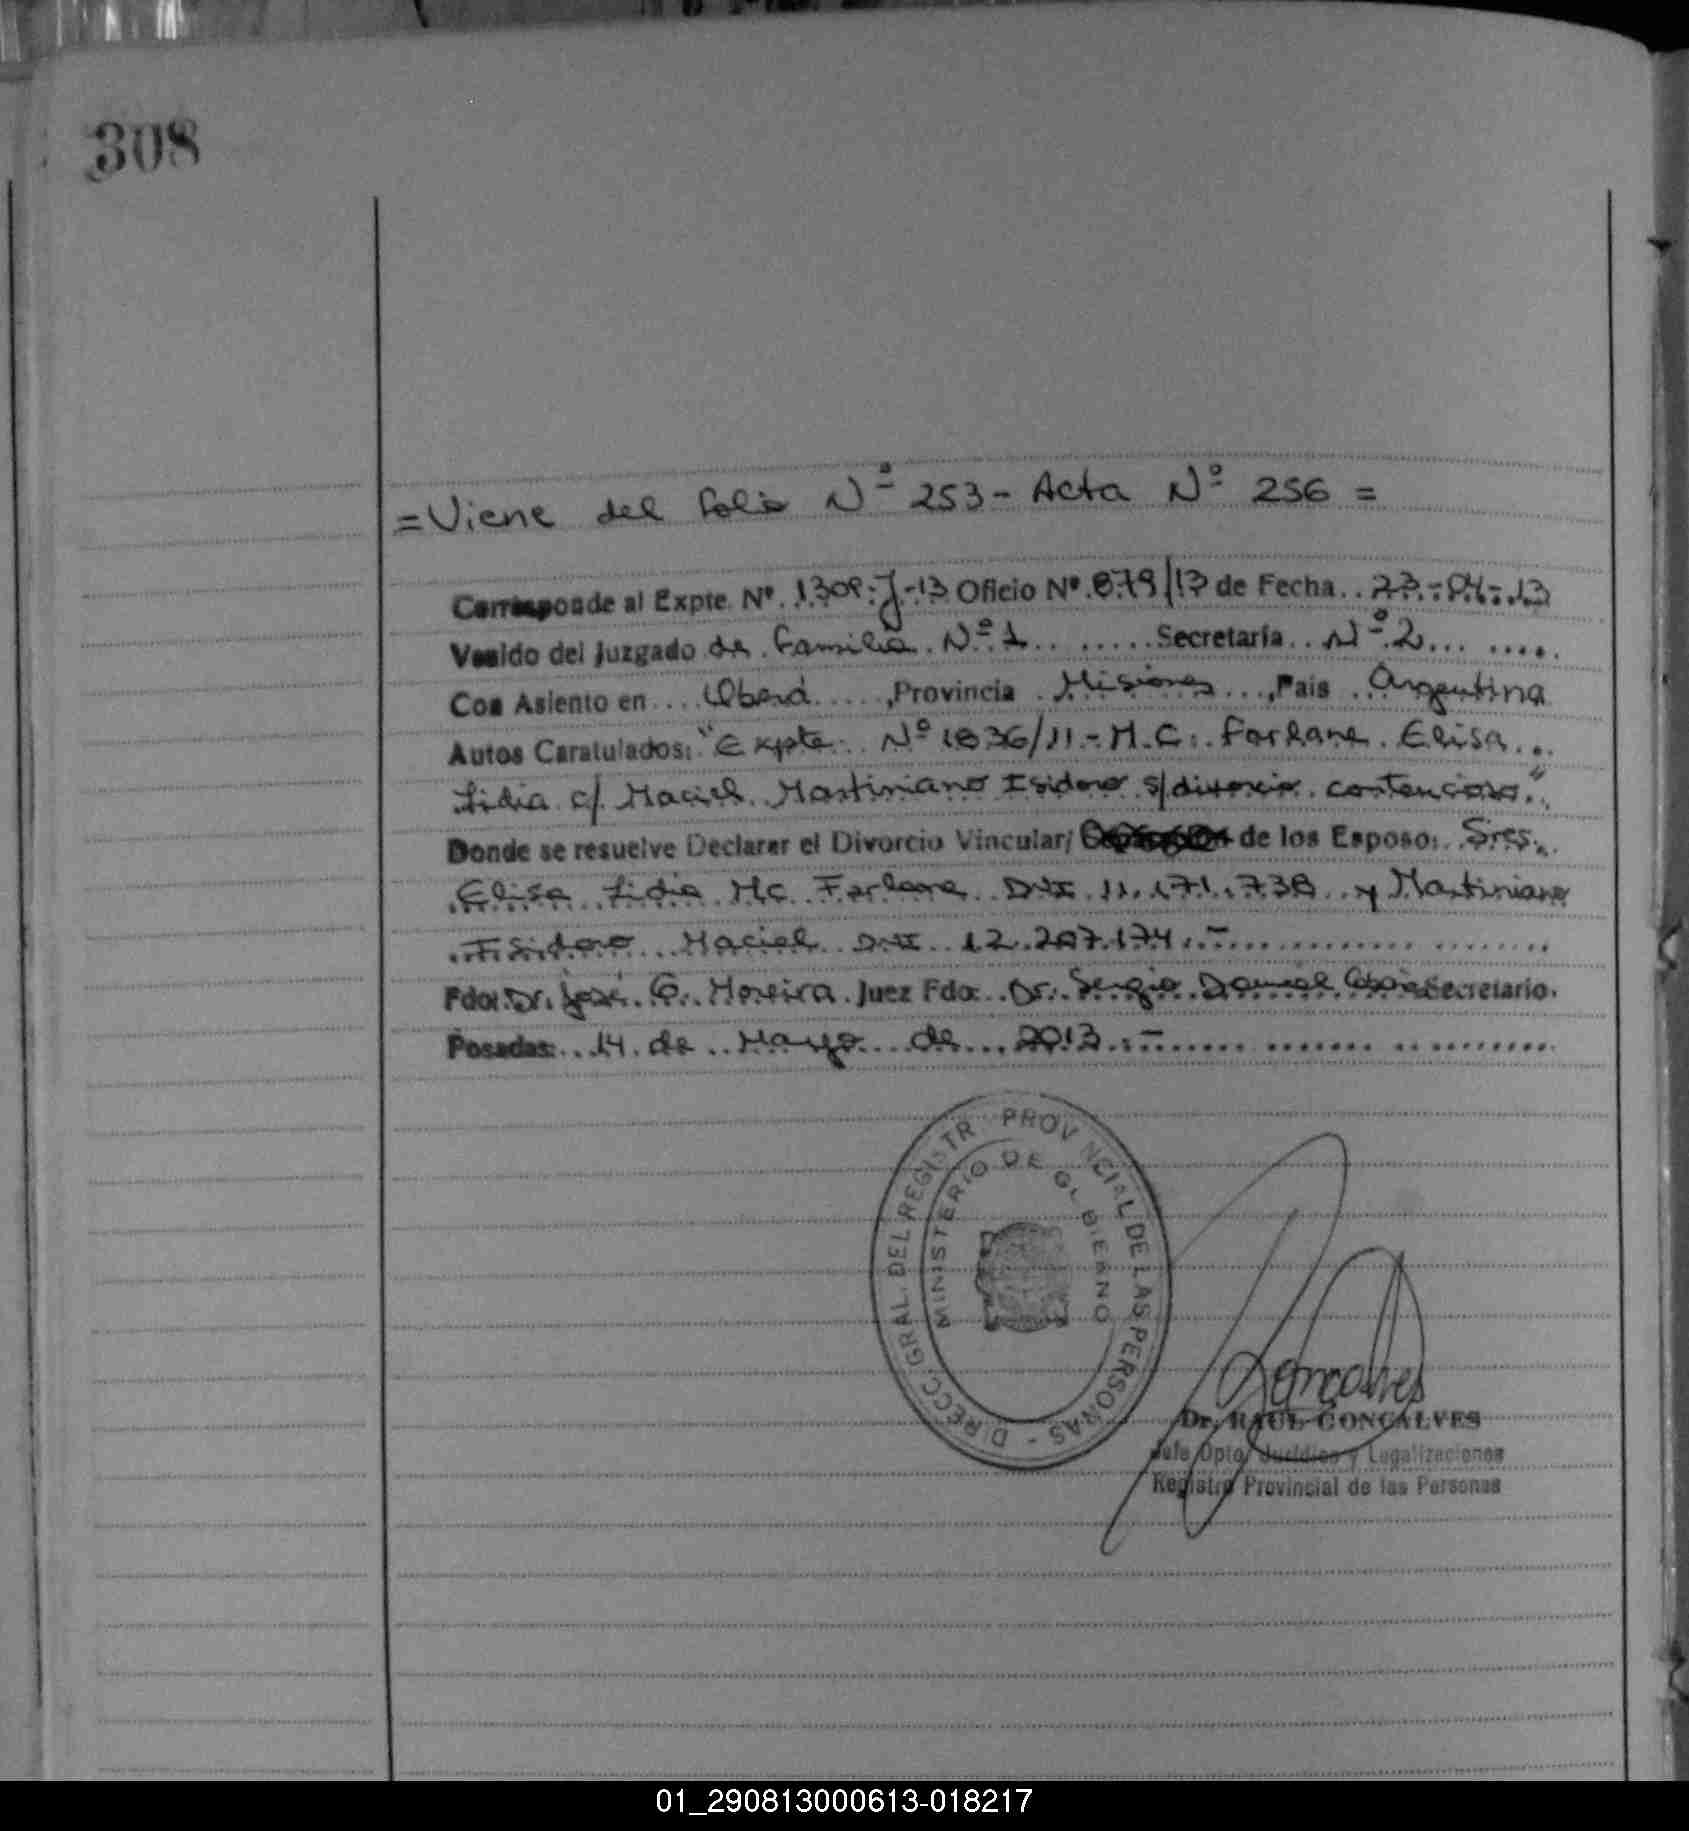 308
= Viene del folio Nº 253 - Acta Nº 256 =
Corresponde al Expte. Nº. 1309-J-13 Oficio Nº. 879/13 de Fecha.. 23-04-13
Venido del Juzgado de Familia Nº 1 ....... Secretaría.. Nº 2... .....
Con Asiento en.... Oberá....., Provincia . Misiones ..., País .. Argentina
Autos Caratulados: "Expte. Nº 1836/11.- M.C. Farlane Elisa...
Lidia c/ Maciel Martiniano Isidoro s/divorcio contencioso."
Donde se resuelve Declarar el Divorcio Vincular/ de los Esposo: Sres.
Elisa Lidia Mc Farlane DNI 11.171.738 y Martiniano
Isidoro Maciel DNI 12.207.174.-
Fdo: Dr. José G. Moreira. Juez Fdo: Dr. Sergio Daniel Secretario.
Posadas: 14 de Mayo de 2013.-
DIRECC. GRAL. DEL REGISTR PROVINCIAL DE LAS PERSONAS -
MINISTERIO DE GOBIERNO
Goncalves
Dr. RAUL GONCALVES
Jefe Dpto. Jurídico y Legalizaciones
Registro Provincial de las Personas
01_290813000613-018217